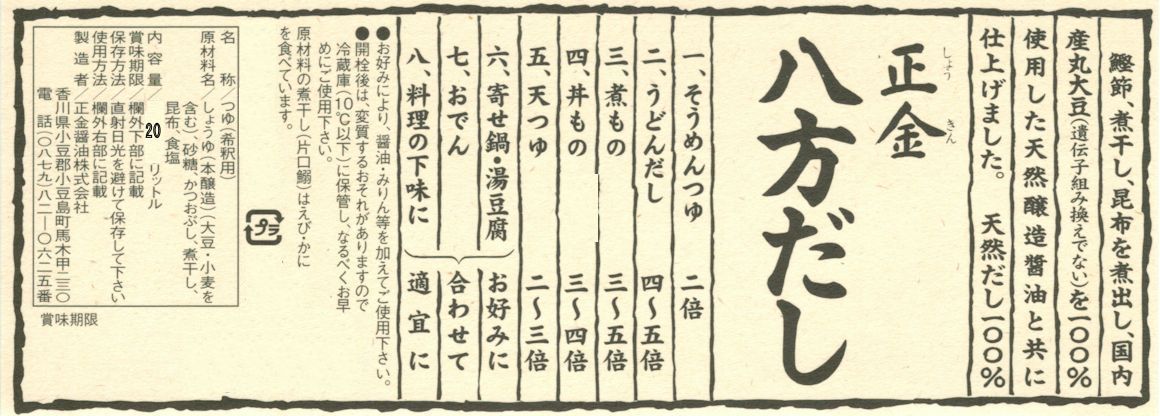 鰹節、煮干し、昆布を煮出し、国内
産丸大豆(遺伝子組み換えでない)を一〇〇%
使用した天然醸造醤油と共に
仕上げました。 天然だし一〇〇%
正金
しょう きん
八方だし
一、そうめんつゆ 二倍
二、うどんだし 四〜五倍
三、煮もの 三〜五倍
四、丼もの 三〜四倍
五、天つゆ 二〜三倍
六、寄せ鍋・湯豆腐 お好みに
七、おでん 合わせて
八、料理の下味に 適宜に
●お好みにより、醤油・みりん等を加えてご使用下さい。
●開栓後は、変質するおそれがありますので
冷蔵庫(10℃以下)に保管し、なるべくお早
めにご使用下さい。
原材料の煮干し(片口鰯)はえび・かに
を食べています。
プラ
名称/つゆ(希釈用)
原材料名/しょうゆ(本醸造)(大豆・小麦を
含む)、砂糖、かつおぶし、煮干し、
昆布、食塩
内容量/20リットル
賞味期限/欄外下部に記載
保存方法/直射日光を避けて保存して下さい
使用方法/欄外右部に記載
製造者/正金醤油株式会社
香川県小豆郡小豆島町馬木甲二三〇
電話(〇八七九)八二―〇六二五番
賞味期限